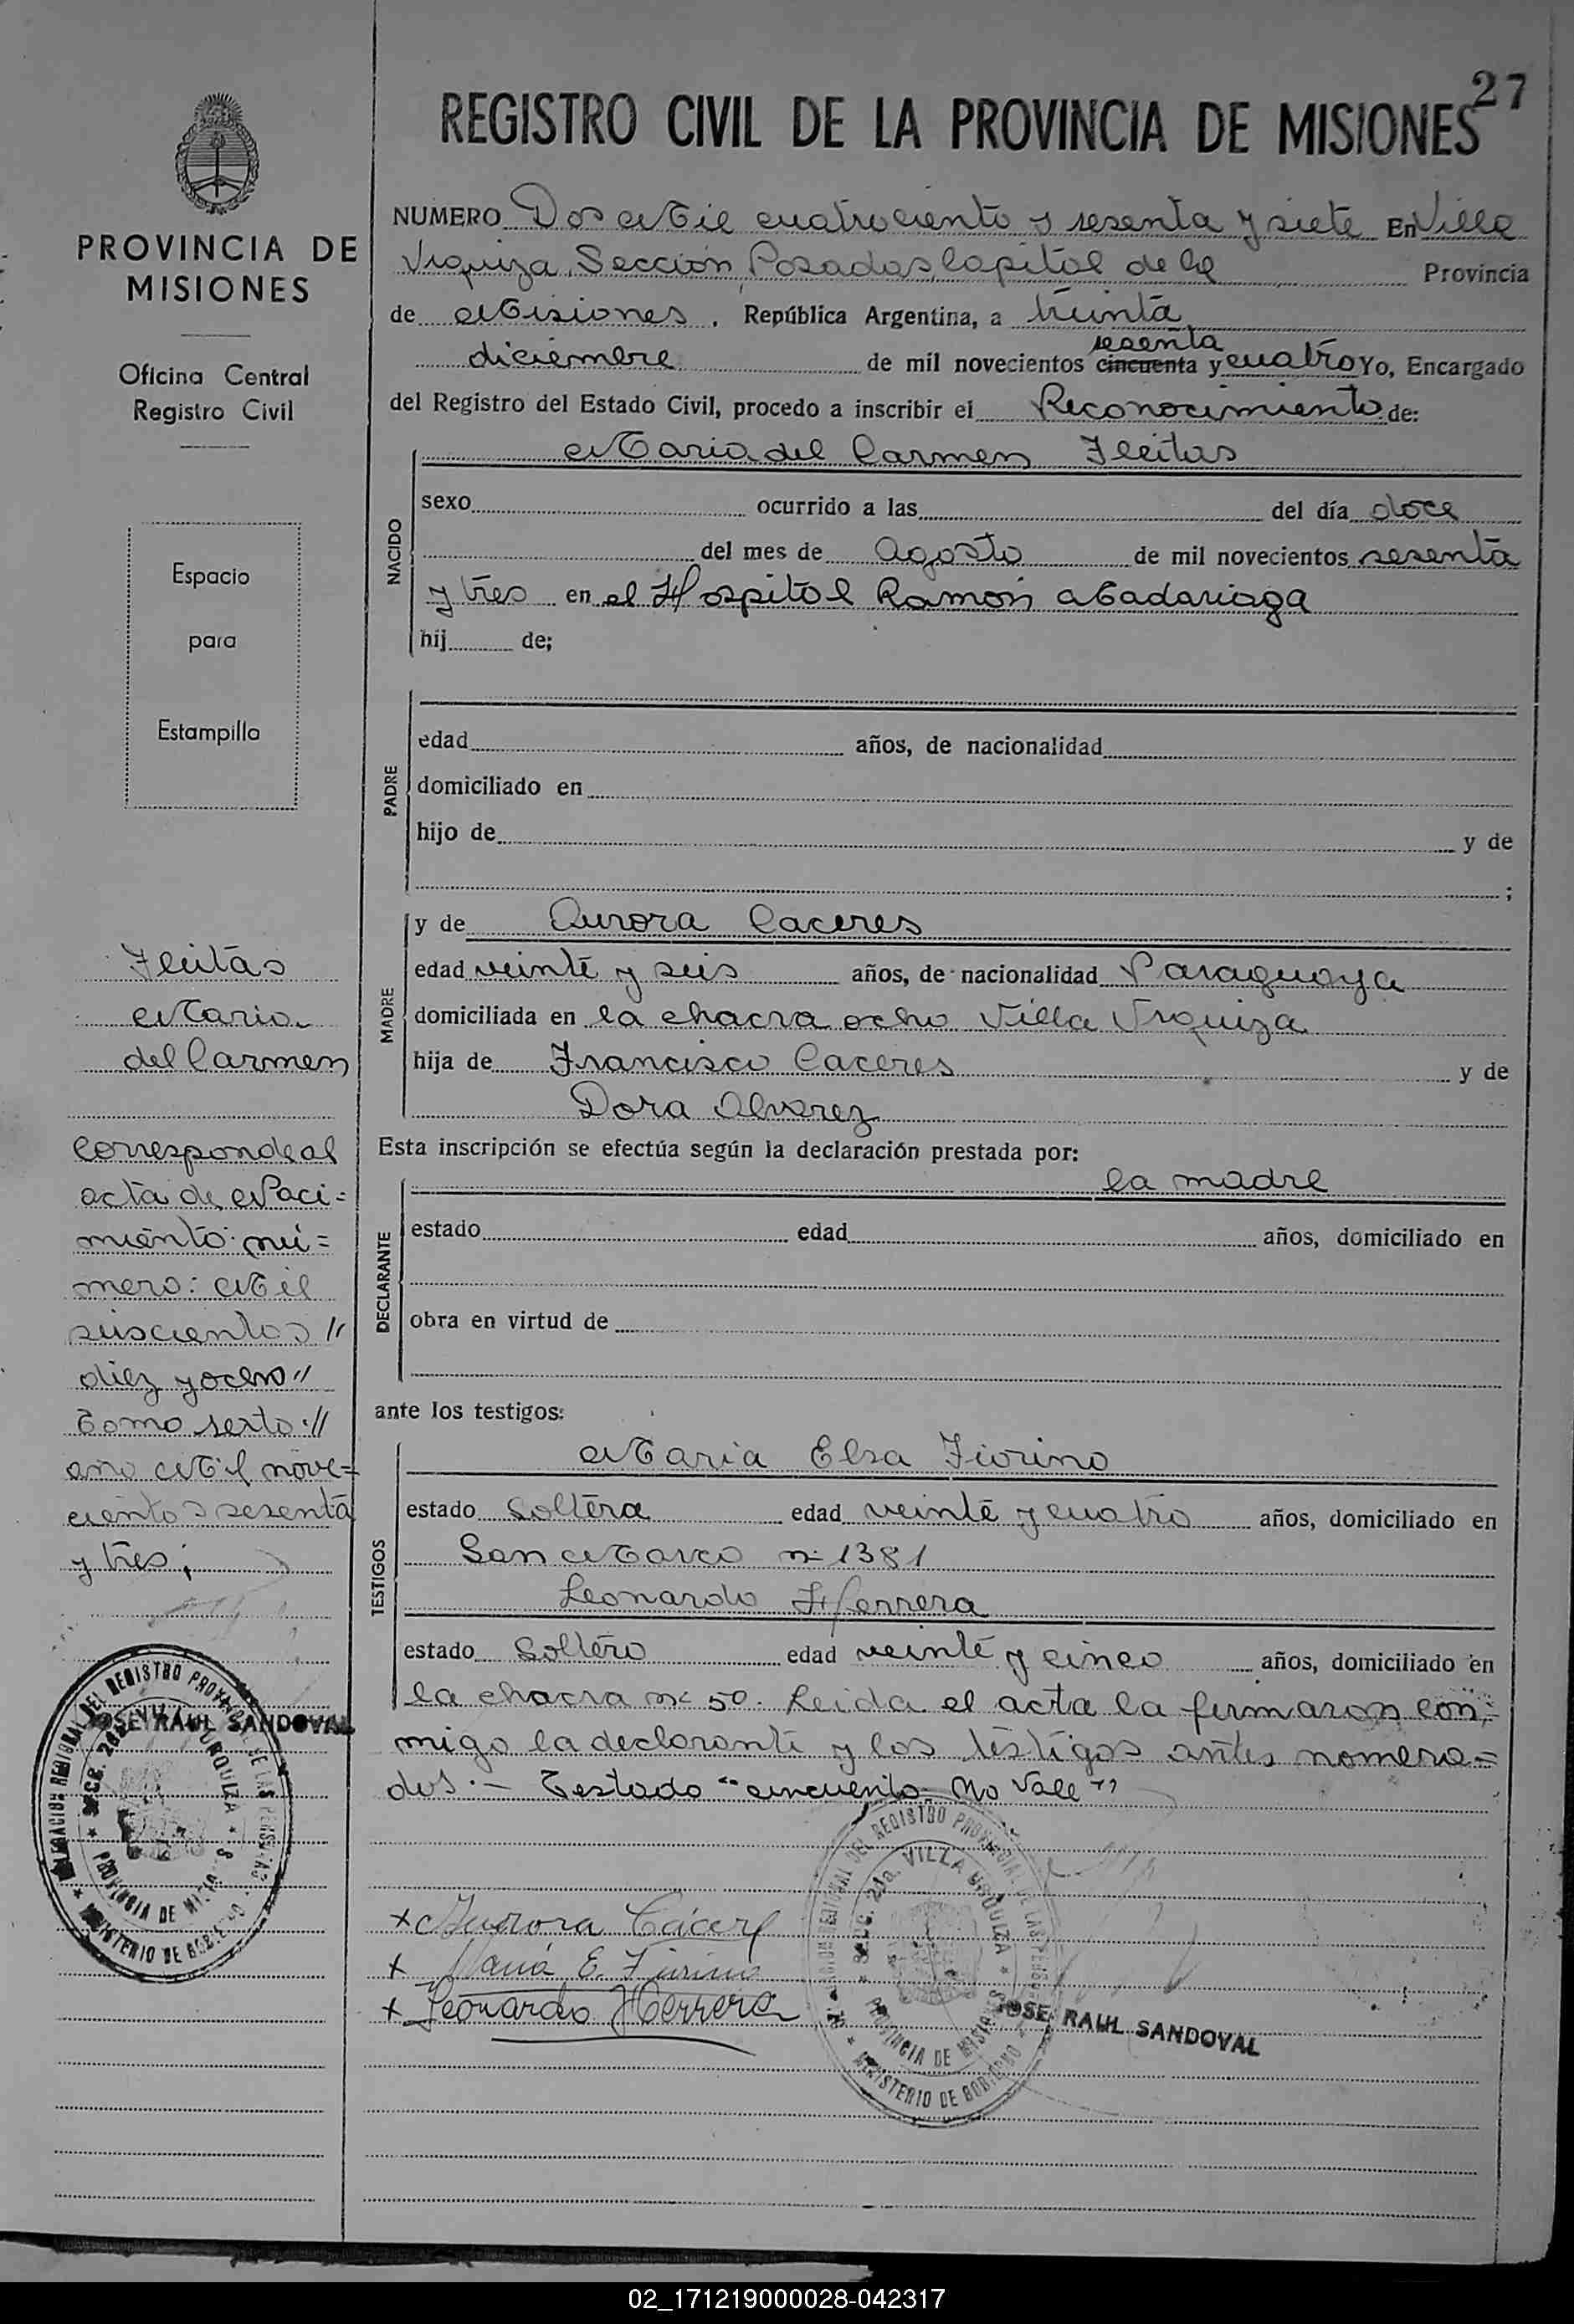 27
REGISTRO CIVIL DE LA PROVINCIA DE MISIONES
PROVINCIA DE
MISIONES
Oficina Central
Registro Civil
Espacio
para
Estampilla
NUMERO Dos Mil cuatrociento s sesenta y siete En Villa
Urquiza, Sección Posadas Capital de la Provincia
de Misiones, República Argentina, a treinta
diciembre de mil novecientos cincuenta sesenta y cuatro Yo, Encargado
del Registro del Estado Civil, procedo a inscribir el Reconocimiento de:
NACIDO
Maria del Carmen Fleitas
sexo ocurrido a las del día doce
del mes de Agosto de mil novecientos sesenta
y tres en el Hospital Ramón Madariaga
hij de;
PADRE
edad años, de nacionalidad
domiciliado en
hijo de y de
;
MADRE
y de Aurora Caceres
edad veinte y seis años, de nacionalidad Paraguaya
domiciliada en la chacra ocho Villa Urquiza
hija de Francisco Caceres y de
Dora Alvarez
Esta inscripción se efectúa según la declaración prestada por:
DECLARANTE
la madre
estado edad años, domiciliado en
obra en virtud de
ante los testigos:
TESTIGOS
Maria Elsa Fiorino
estado Soltera edad veinte y cuatro años, domiciliado en
San Marco n: 1381
Leonardo Herrera
estado Soltero edad veinte y cinco años, domiciliado en
la chacra n: 50. Leida el acta la firmaron con=
migo la declarante y los testigos antes nomera=
dos.— Testado "cincuenta No Vale"
+ Aurora Cácere
+ Maria E. Fiorino
+ Leonardo Herrera
JOSE RAUL SANDOVAL
DELEGACION REGIONAL DEL REGISTRO PROVINCIAL DE LAS PERSONAS
SECC. 2da. VILLA URQUIZA
PROVINCIA DE MISIONES
MINISTERIO DE GOBIERNO
Fleitas
Maria
del Carmen
Corresponde al
acta de Naci=
miento nú=
mero: Mil
seiscientos //
diez y ocho //
Tomo sexto://
año Mil nove=
cientos sesenta
y tres;
DELEGACION REGIONAL DEL REGISTRO PROVINCIAL DE LAS PERSONAS
SECC. 2da. VILLA URQUIZA
PROVINCIA DE MISIONES
MINISTERIO DE GOBIERNO
JOSE RAUL SANDOVAL
02_171219000028-042317